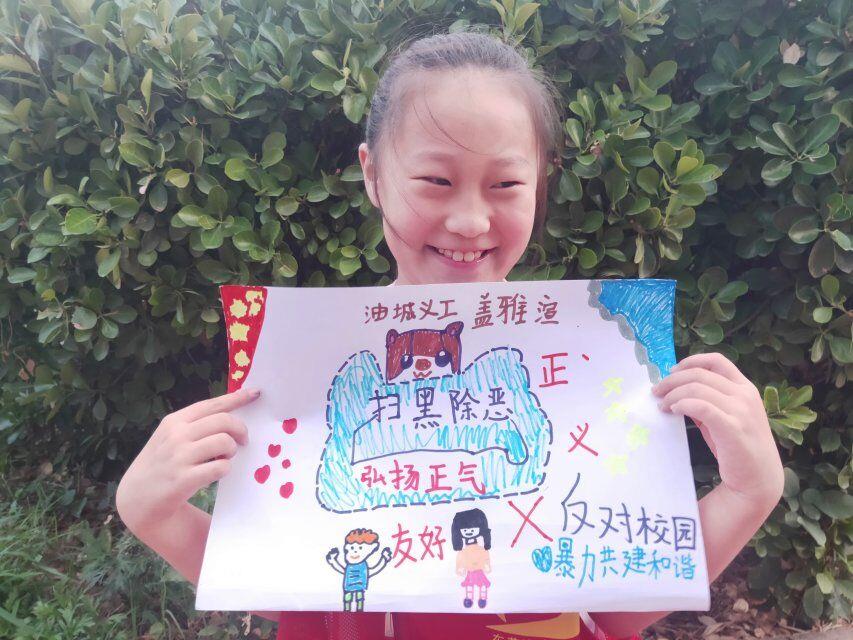 油城义工 盖雅渲
扫黑除恶
正
义
弘扬正气
友好
反对校园
暴力共建和谐